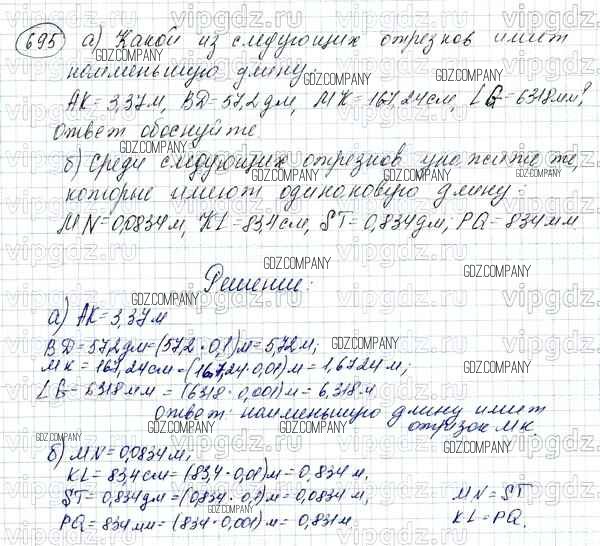 695 а) Какой из следующих отрезков имеет
наименьшую длину:
АК = 3,37м, ВD = 57,2 дм, МК = 167,24см, LG = 6318мм?
Ответ обоснуйте
б) Среди следующих отрезков укажите те,
которые имеют одинаковую длину:
MN = 0,0834 м, KL = 83,4 см, ST = 0,834 дм, PQ = 834 мм
Решение:
а) АК = 3,37 м
ВD = 57,2 дм = (57,2 · 0,1) м = 5,72 м;
МК = 167,24 см = (167,24 · 0,01) м = 1,6724 м;
LG = 6318 мм = (6318 · 0,001) м = 6,318 м
Ответ наименьшую длину имеет
отрезок МК.
б) MN = 0,0834 м,
KL = 83,4 см = (83,4 · 0,01) м = 0,834 м,
ST = 0,834 дм = (0,834 · 0,1) м = 0,0834 м, MN = ST
PQ = 834 мм = (834 · 0,001) м = 0,834 м. KL = PQ.
GDZ.COMPANY
vipgdz.ru